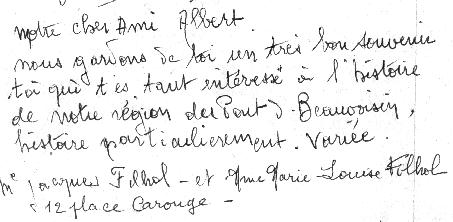 notre cher Ami Albert.
nous gardons de toi un très bon souvenir
toi qui t'es tant intéressé à l'histoire
de notre région des Pont d. Beauvoisin,
histoire particulièrement. Variée.
Mr Jacques Filhol - et Mme Marie-Louise Filhol
12 place Carouge -